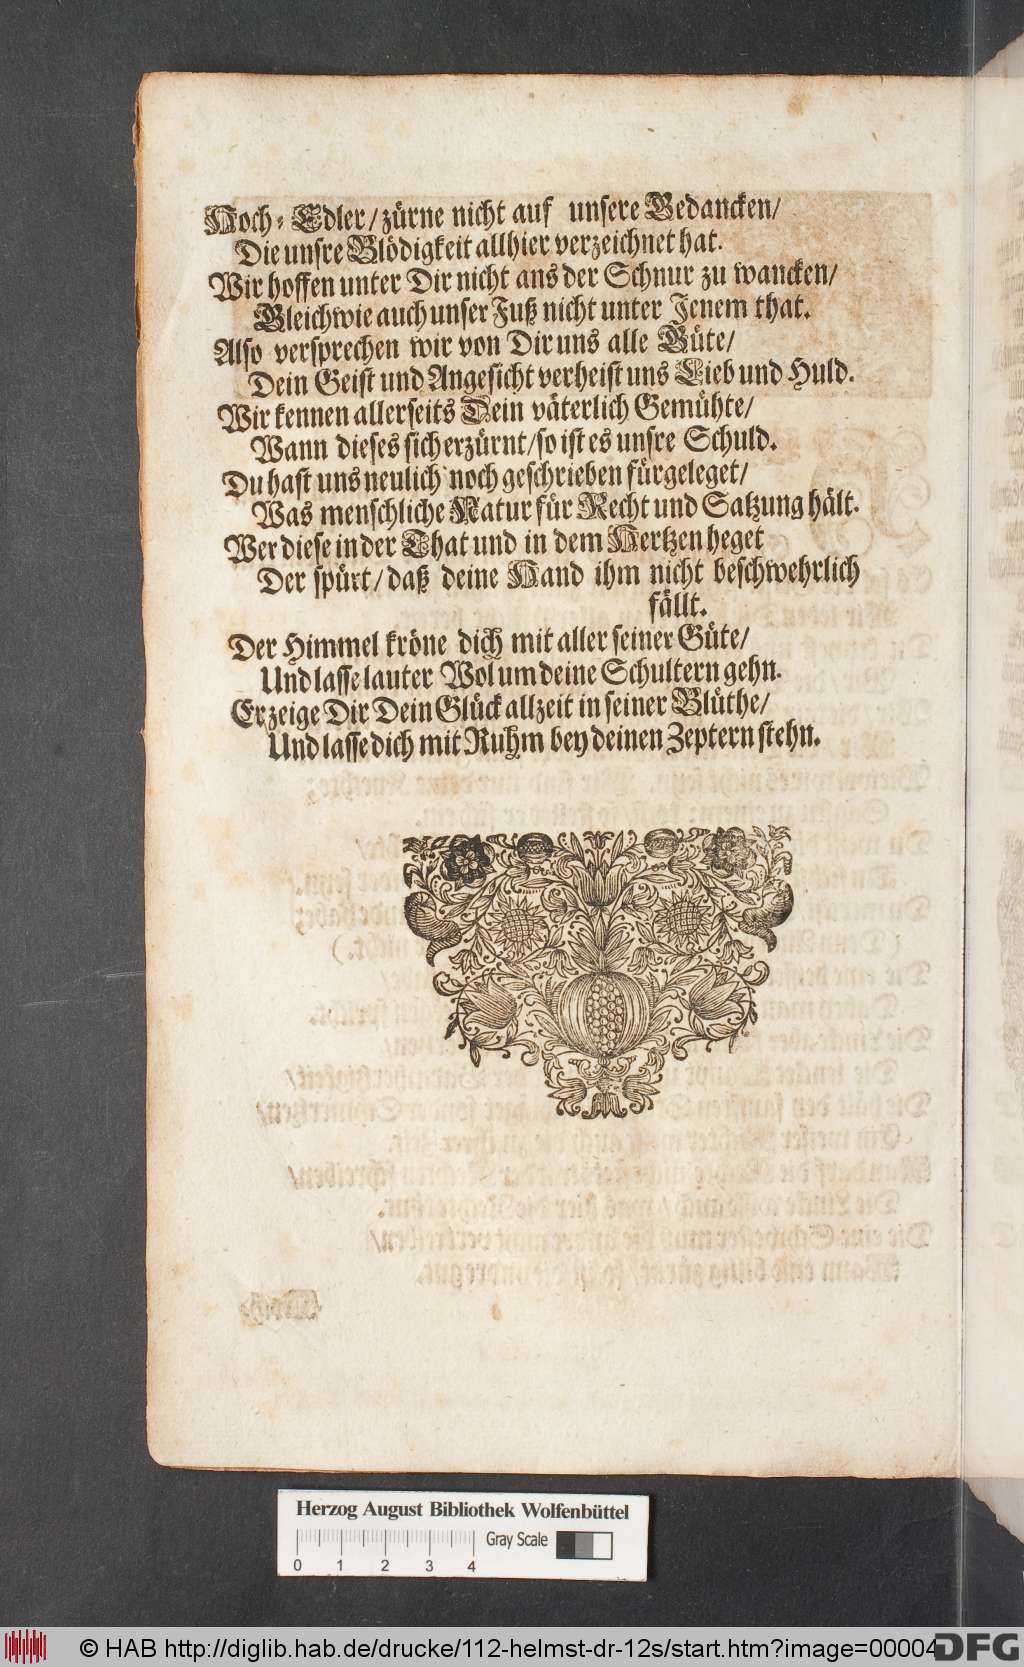 Hoch-Edler/ zürne nicht auf unsere Gedancken/
Die unsre Blödigkeit allhier verzeichnet hat.
Wir hoffen unter Dir nicht aus der Schnur zu wancken/
Gleichwie auch unser Fuß nicht unter Jenem that.
Also versprechen wir von Dir uns alle Güte/
Dein Geist und Angesicht verheist uns Lieb und Huld.
Wir kennen allerseits Dein väterlich Gemühte/
Wann dieses sich erzürnt/ so ist es unsre Schuld.
Du hast uns neulich noch geschrieben fürgeleget/
Was menschliche Natur für Recht und Satzung hält.
Wer diese in der That und in dem Hertzen heget
Der spürt/ daß deine Hand ihm nicht beschwehrlich
fällt.
Der Himmel kröne dich mit aller seiner Güte/
Und lasse lauter Wol um deine Schultern gehn.
Erzeige Dir Dein Glück allzeit in seiner Blüthe/
Und lasse dich mit Ruhm bey deinen Zeptern stehn.
Herzog August Bibliothek Wolfenbüttel
Gray Scale
0 1 2 3 4
© HAB http://diglib.hab.de/drucke/112-helmst-dr-12s/start.htm?image=00004
DFG